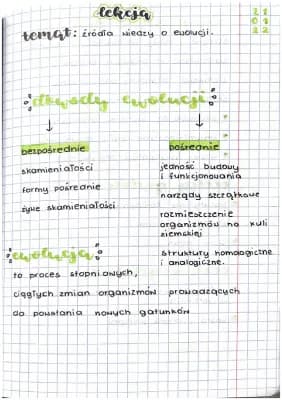 lekcja
21
01
22
temat: źródła wiedzy o ewolucji.
dowody ewolucji
↓ ↓
bezpośrednie
skamieniałości
formy pośrednie
żywe skamieniałości
pośrednie
jedność budowy
i funkcjonowania
narządy szczątkowe
rozmieszczenie
organizmów na kuli
ziemskiej
struktury homologiczne
i analogiczne.
ewolucja
to proces stopniowych,
ciągłych zmian organizmów prowadzących
do powstania nowych gatunków